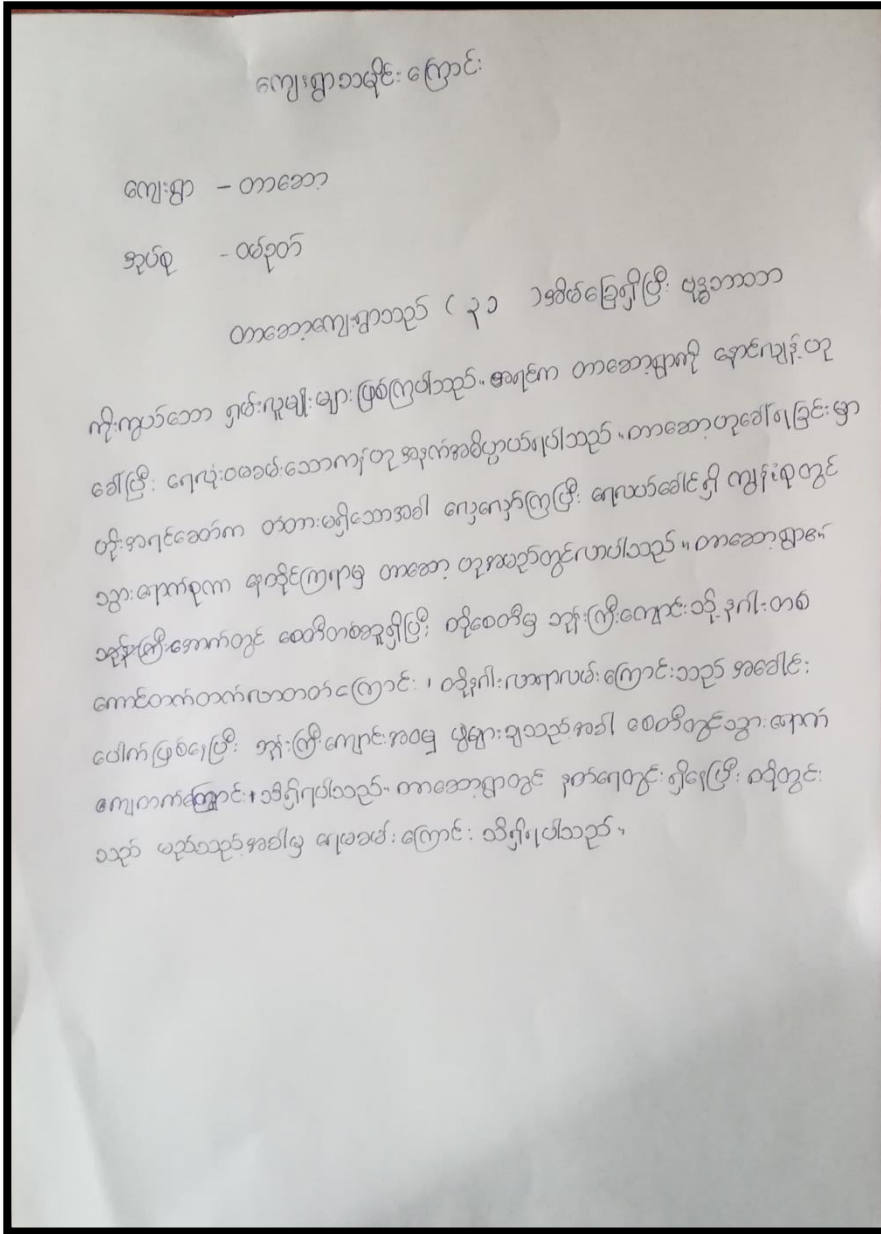 ကျေးရွာသမိုင်းကြောင်း
ကျေးရွာ - တာဆော့
အုပ်စု - ဝမ်ဥတ်
တာဆော့ကျေးရွာသည် ( ၃၁ ) အိမ်ခြေရှိပြီး ဗုဒ္ဓဘာသာ
ကိုးကွယ်သော ရှမ်းလူမျိုးများ ဖြစ်ကြပါသည်။ အရင်က တာဆော့ရွာကို နောင်လျှန့် ဟု
ခေါ်ပြီး ရေလုံးဝမခမ်းသောကန်ဟု အနက်အဓိပ္ပာယ်ရပါသည်။ တာဆော့ဟုခေါ်ရခြင်းမှာ
ဟိုးအရင်ခေတ်က တံတားမရှိသောအခါ လှေလှော်ကြပြီး ရေလယ်ခေါင်ရှိ ကျွန်းစုတွင်
သွားရောက်စုကာ နေထိုင်ကြရာမှ တာဆော့ ဟုအမည်တွင်လာပါသည်။ တာဆော့ရွာ၏
အုန်းကြီးအောက်တွင် စေတီတစ်ဆူရှိပြီး ထိုစေတီမှ ဘုန်းကြီးကျောင်းသို့ နဂါးတစ်
ကောင်တက်တက်လာတတ်ကြောင်း ၊ ထိုနဂါးလာရာလမ်းကြောင်းသည် အခေါင်း
ပေါက်ဖြစ်နေပြီး ဘုန်းကြီးကျောင်းအဝမှ ပွဲများချသည့်အခါ စေတီတွင်သွားရောက်
ကျတက်ကြောင်း ၊ သိရှိရပါသည်။ တာဆော့ရွာတွင် နတ်ရေတွင်းရှိနေပြီး ၎င်းတွင်း
သည် မည်သည့်အခါမှ ရေမခမ်းကြောင်း သိရှိရပါသည်။